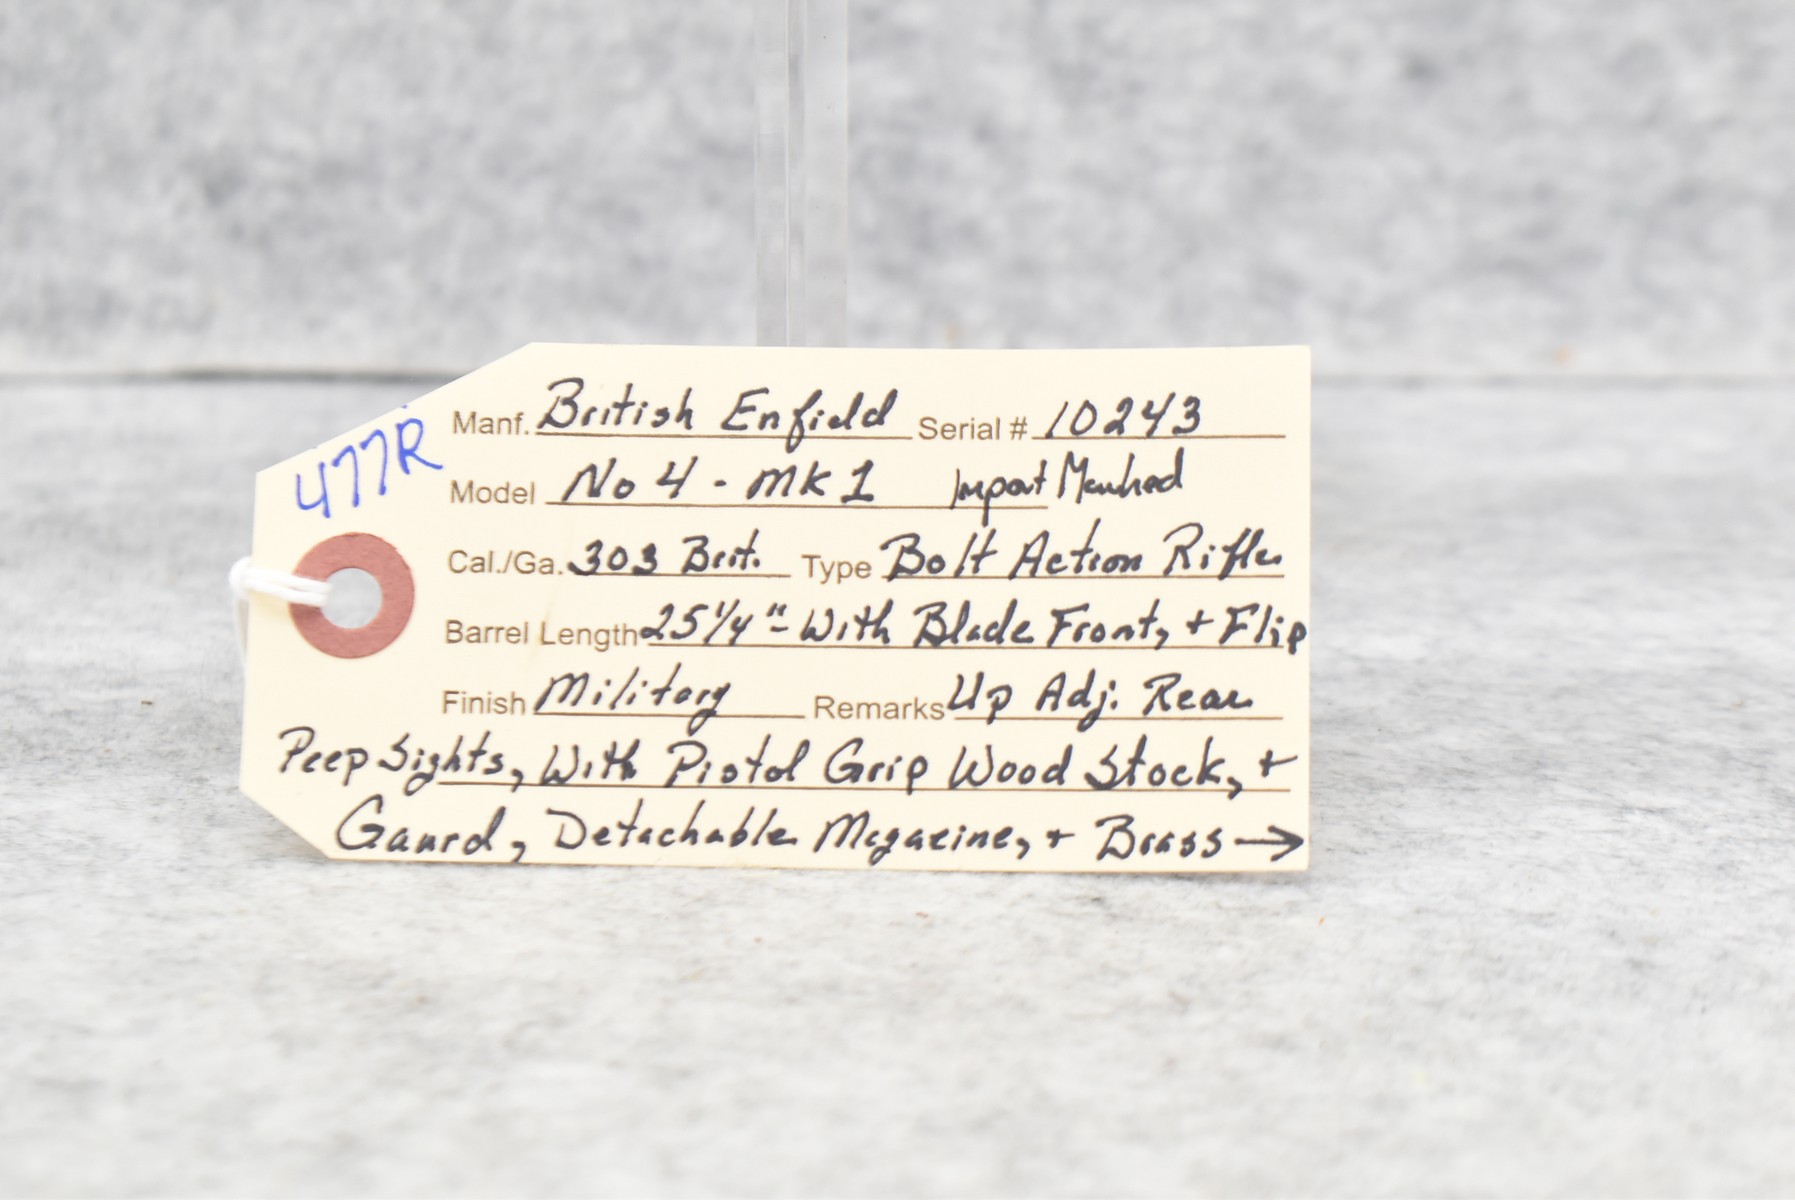 477R
Manf. British Enfield Serial # 10243
Model No 4 - MK 1 Import Marked
Cal./Ga. 303 Brit. Type Bolt Action Rifle
Barrel Length 25 1/4" - With Blade Front, + Flip
Finish Military Remarks Up Adj. Rear
Peep Sights, With Pistol Grip Wood Stock, +
Gaurd, Detachable Magazine, + Brass →